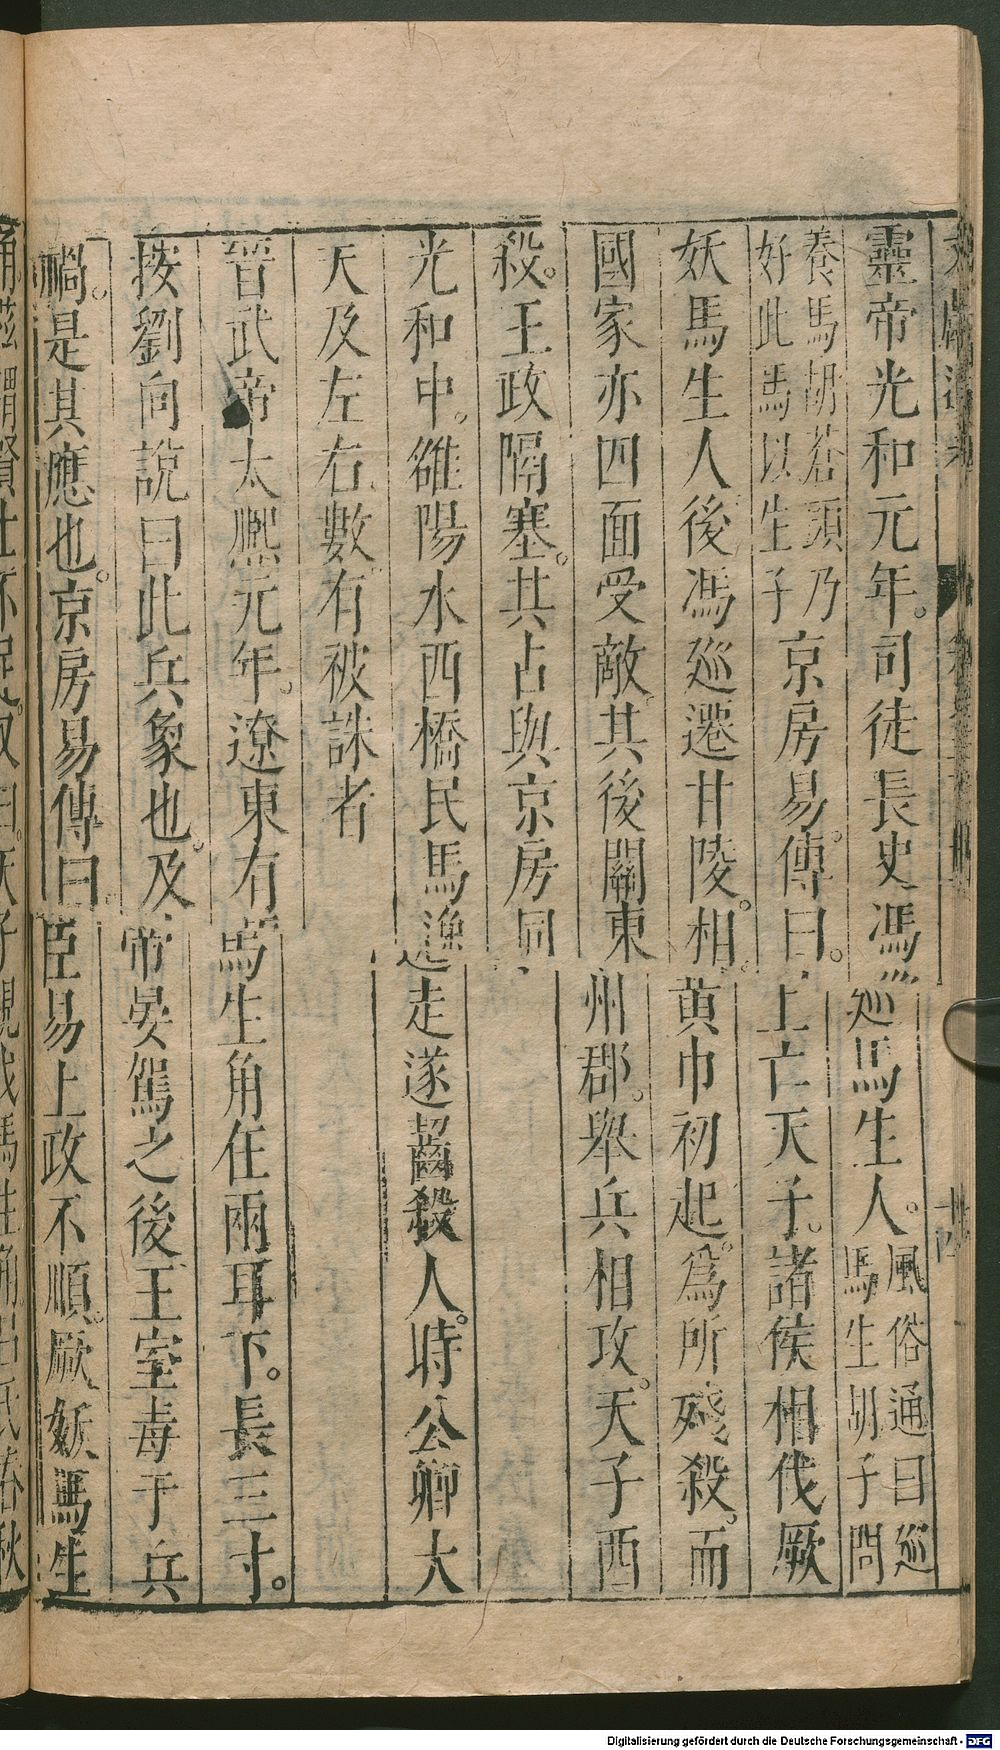 靈帝光和元年。司徒長史馮巡馬生人。風俗通曰巡馬生胡子問
養馬胡蒼頭乃好此馬以生子京房易傳曰。上亡天子。諸侯相伐厥
妖馬生人後馮巡遷甘陵。相。黃巾初起。爲所殘殺。而
國家亦四面受敵。其後關東州郡。舉兵相攻。天子西
殺。王政隔塞。其占與京房同
光和中。雒陽水西橋民馬逸走遂齧殺人。時公卿大
天及左右。數有被誅者
晉武帝太熈元年。遼東有馬生角在兩耳下。長三寸。
按劉向說曰此兵象也。及帝晏駕之後王室毒于兵
禍。是其應也。京房易傳曰。臣易上政不順。厥妖馬生
角茲謂賢士不足。又曰。天子親伐馬生角。呂氏春秋
十四
Digitalisierung gefördert durch die Deutsche Forschungsgemeinschaft - DFG